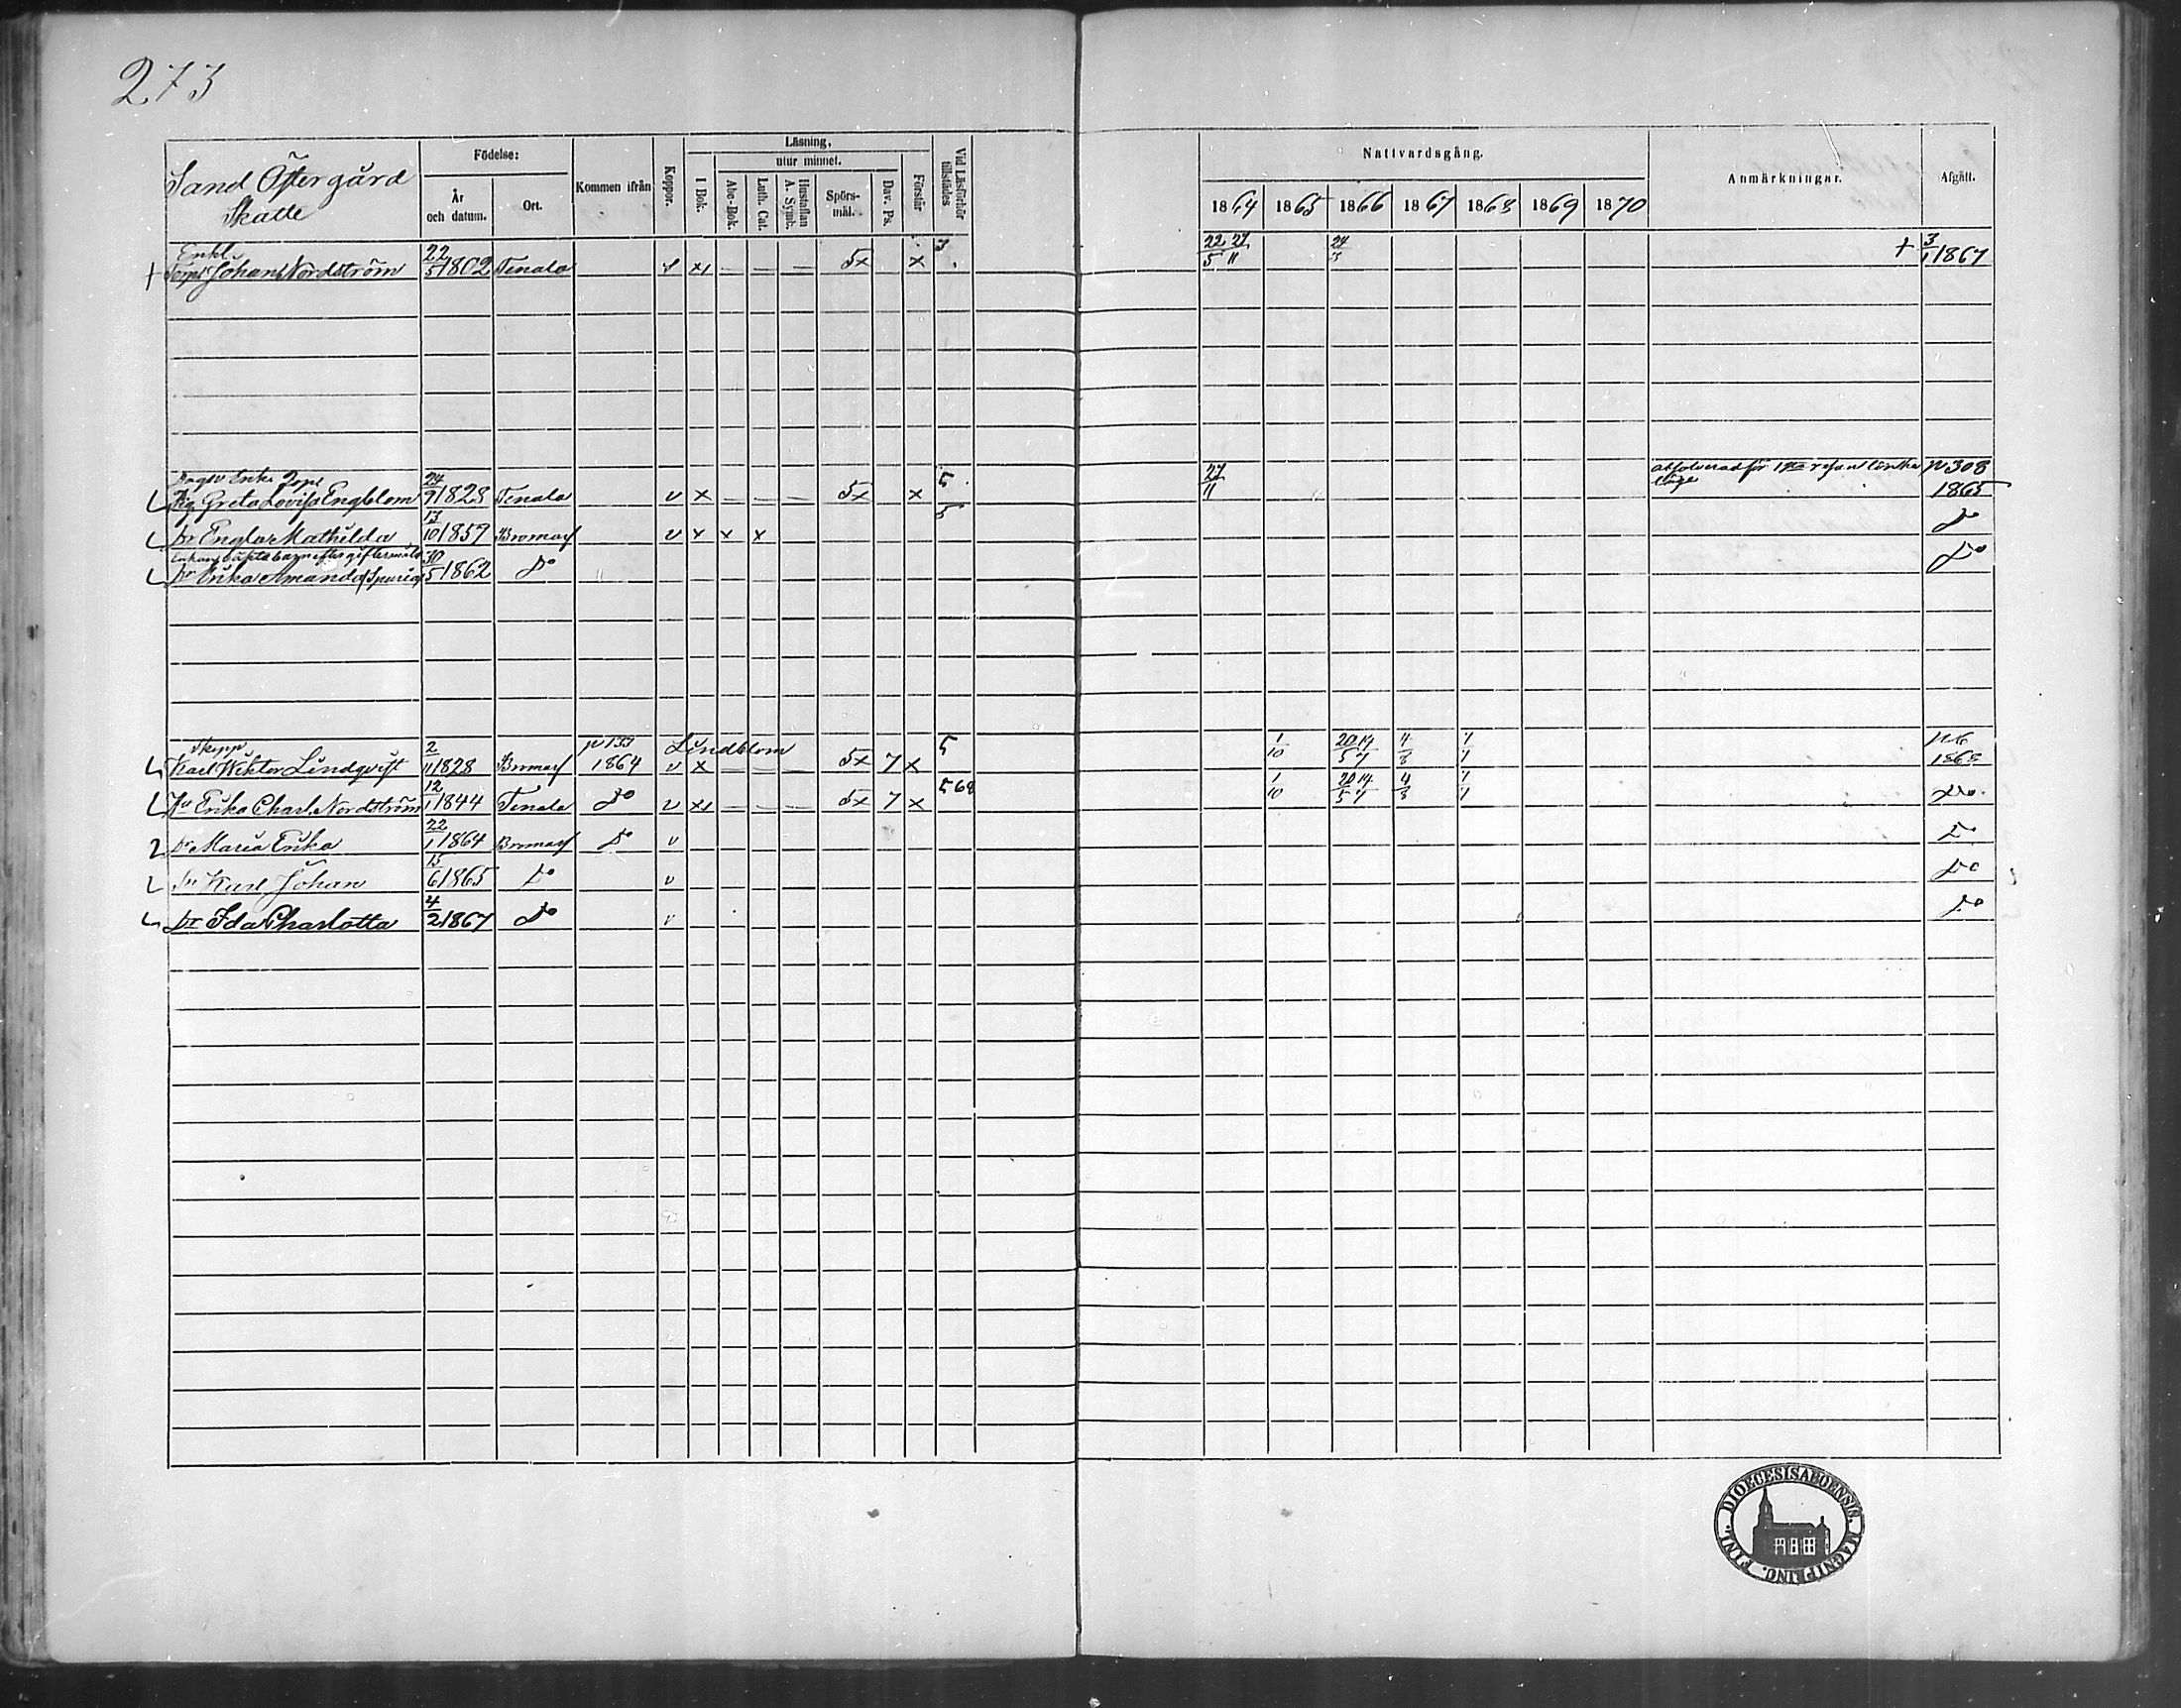 273
Sand Östergård
Skatte
Födelse:
År och datum.
Ort.
Kommen ifrån
Koppor.
Läsning.
I Bok.
utur minnet.
Abc-Bok.
Luth. Cat.
Hustaflan A. Symb.
Spörsmål.
Dav. Ps.
Förstår
Vid Läsförhör tillstädes
Nattvardsgång.
1864 1865 1866 1867 1868 1869 1870
Anmärkningar.
Afgått.
Enkl.
† Johan Nordström 22/5 1802 Tenala v x1 — — — 5x x 3 22/5 27/11 24/3 † 3/1 1867
Enka
Greta Lovisa Engblom 24/9 1828 Tenala v x — — — 5x x 5 27/11 p 308 1865
Dr Engla Mathilda 13/10 1857 Bromarf v x x x 5 Do
Dr Erika Amanda (Spuria) 30/5 1862 Do Do
Skepp
Karl Wiktor Lindqvist 2/11 1828 Bromarf p 133 1864 Lindblom v x — — — 5x 7 x 5 1/10 20/5 14/7 4/8 1/1 1868
Hu Erika Charl. Nordström 12/1 1844 Tenala Do v x1 — — — 5x 7 x 5 68 1/10 20/5 14/7 4/8 1/1 Do
Dr Maria Erika 22/1 1864 Bromarf Do v Do
Sn Karl Johan 15/6 1865 Do v Do
Dr Ida Charlotta 4/2 1867 Do v Do
DIOECESIS ABOENSIS. MAGNI PRINC. FINL.